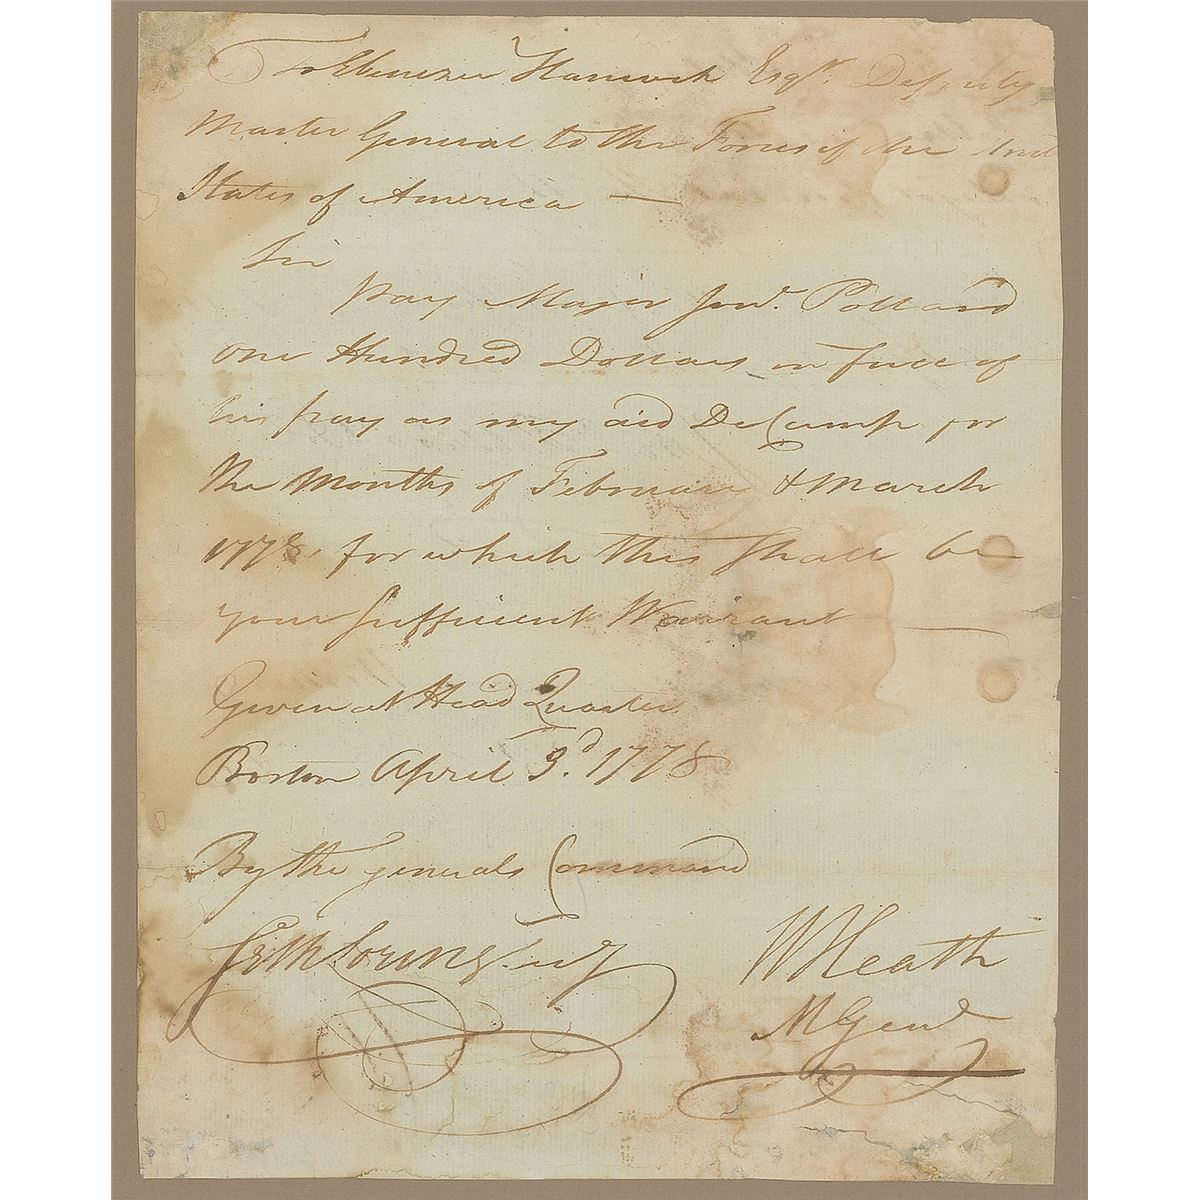 To Ebenezer Hancock Esqr. Deputy
Master General to the Forces of the
States of America —
Sir
pay Major Jon. Pollard
one Hundred Dollars in full of
his pay as my aid De Camp for
the Months of February & March
1778, for which this Shall be
your Sufficient Warrant —
Given at Head Quarters
Boston April 3d. 1778
By the generals Command
Seth Loring Secy
W Heath
M Genl